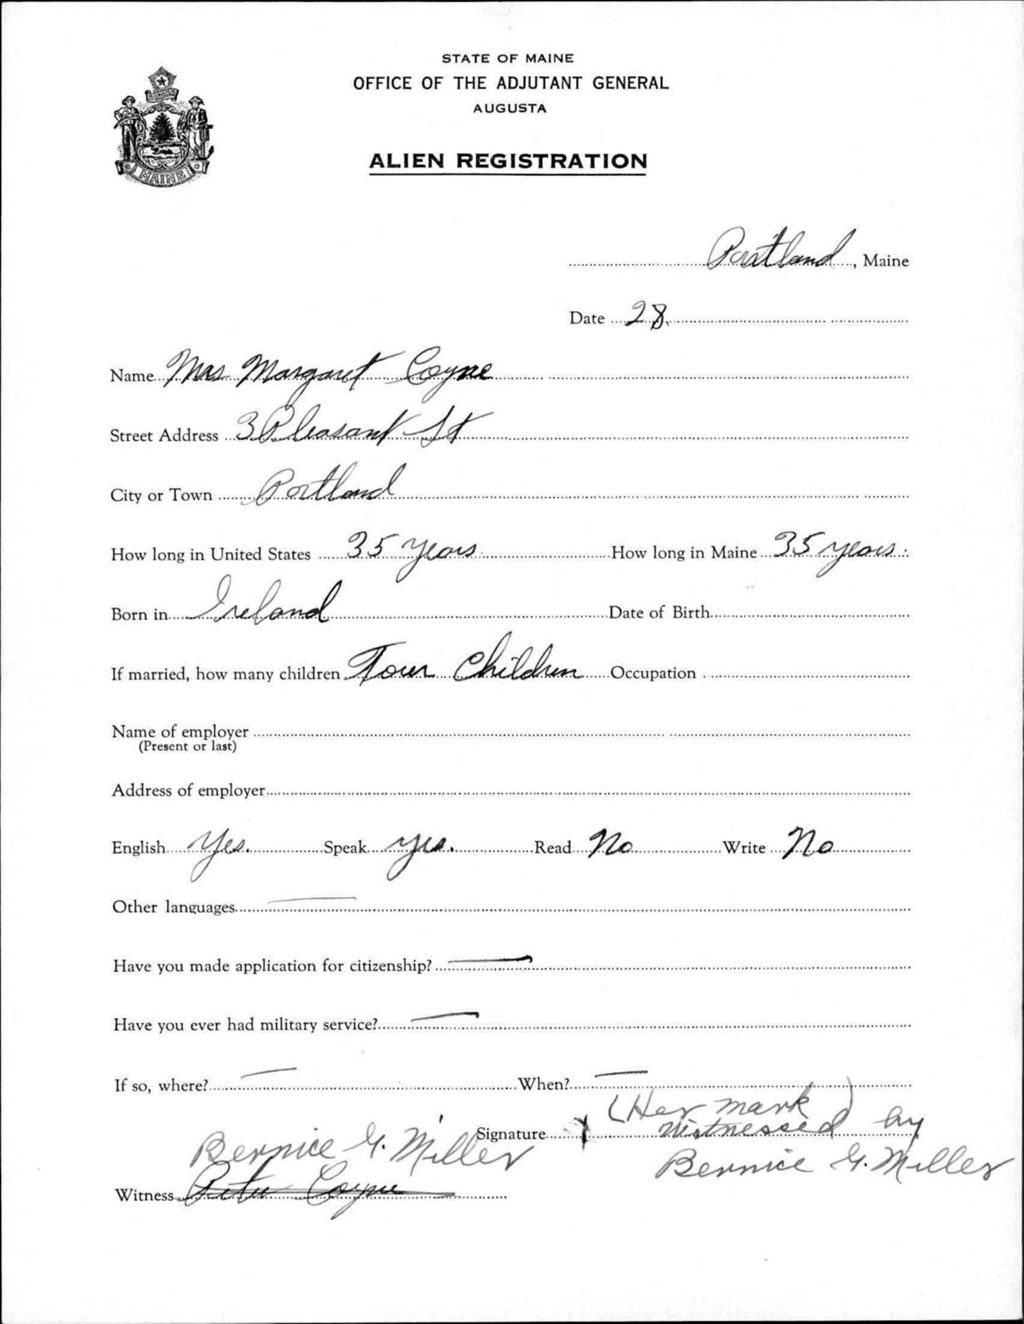 STATE OF MAINE
OFFICE OF THE ADJUTANT GENERAL
AUGUSTA
ALIEN REGISTRATION
MAINE
Portland, Maine
Date 28.
Name Mrs Margaret Coyne
Street Address 3 Pleasant St
City or Town Portland
How long in United States 35 years How long in Maine 35 years.
Born in Ireland Date of Birth
If married, how many children Four Children Occupation
Name of employer
(Present or last)
Address of employer
English Yes. Speak yes. Read No Write No
Other languages
Have you made application for citizenship?
Have you ever had military service?
If so, where? When?
(Her mark)
Signature X Witnessed by
Bernice G. Miller
Bernice G. Miller
Witness Peter Coyne